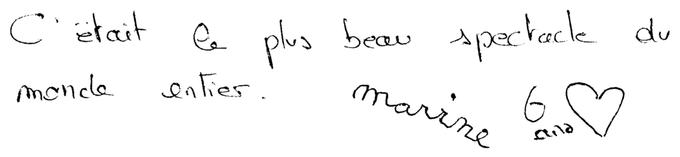 C'était le plus beau spectacle du
monde entier. Marine 6 ans